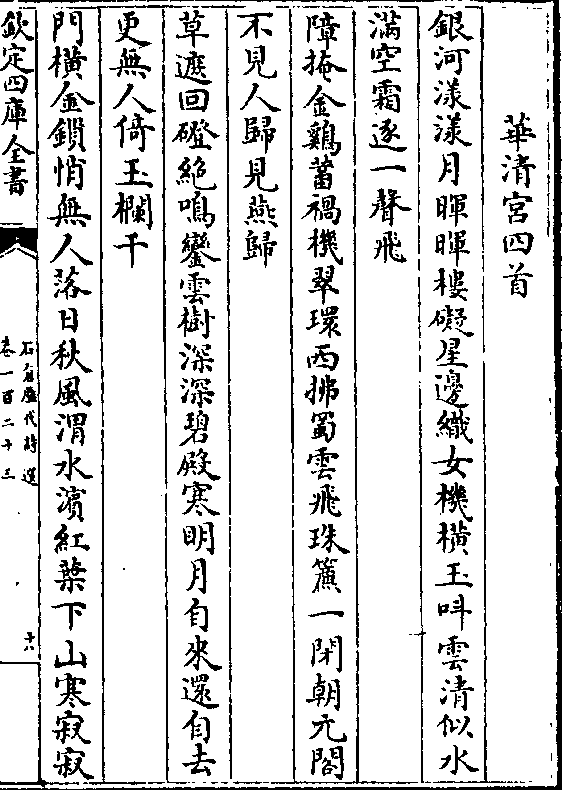 華清宮四首
銀河漾漾月暉暉樓礙星邊織女機橫玉呌雲清似水
滿空霜逐一聲飛
障掩金鷄蓄禍機翠環西拂蜀雲飛珠簾一閉朝元閣
不見人歸見燕歸
草遮回磴絶鳴鑾雲樹深深碧殿寒明月自來還自去
更無人倚玉欄干
門橫金鎖悄無人落日秋風渭水濵紅葉下山寒寂寂
欽定四庫全書
石倉歴代詩選
卷一百二十三
十六